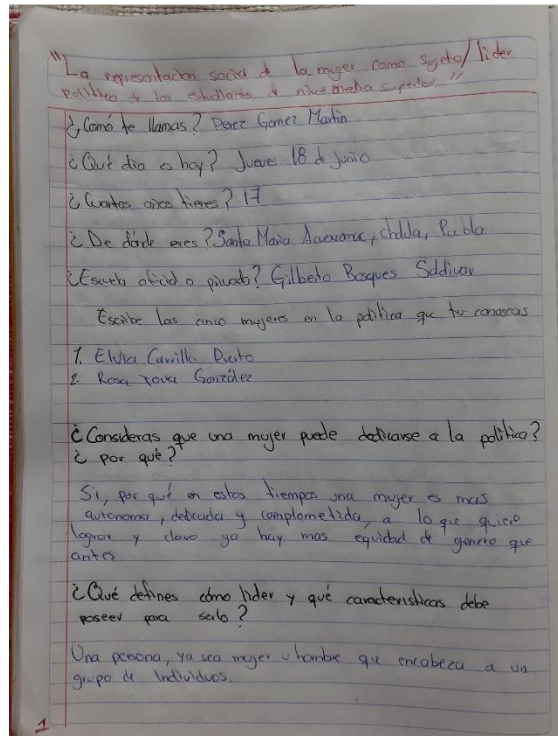 "La representacion social de la mujer como sujeto/lider
politico de los estudiantes de nivel medio superior"
¿Comó te llamas? Perez Gomez Martin
¿Qué dia es hoy? Jueves 18 de junio
¿Cuantos años tienes? 17
¿De dónde eres? Santa Maria, Puebla
¿Escuela oficial o privada? Gilberto Bosques Saldivar
Escribe las cinco mujeres en la política que tu conoscas
1. Elvia Carrillo Puerto
2. Rosa González
¿Consideras que una mujer puede dedicarse a la política?
¿por qué?
Si, por qué en estos tiempos una mujer es mas
autonoma, dedicada y complometida, a lo que quiere
lograr y claro ya hay mas equidad de genero que
antes
¿Qué defines cómo lider y qué caracteristicas debe
poseer para serlo?
Una persona, ya sea mujer u hombre que encabeza a un
grupo de Individuos.
1